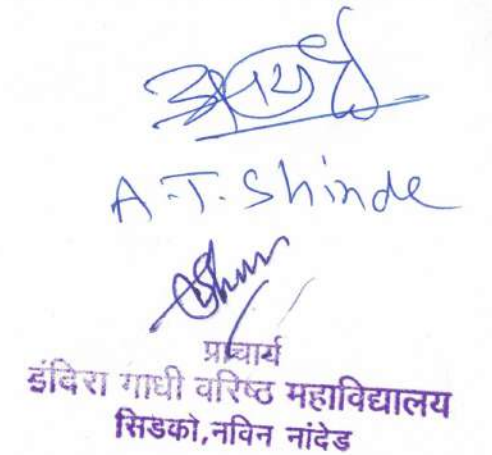 A.T. Shinde
प्राचार्य
इंदिरा गाधी वरिष्ठ महाविद्यालय
सिडको,नविन नांदेड